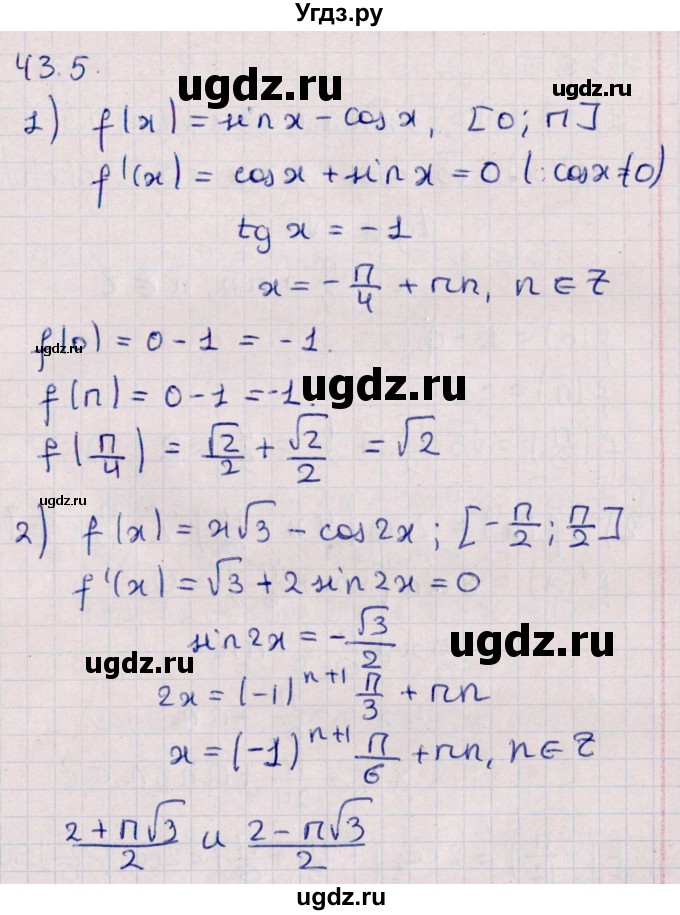 Угдз.ру
43.5.
ugdz.ru
ugdz.ru
1) f(x) = sin x - cos x, [0; π]
f'(x) = cos x + sin x = 0 (: cos x ≠ 0)
tg x = -1
x = -π/4 + πn, n ∈ Z
ugdz.ru
f(0) = 0 - 1 = -1.
f(π) = 0 - 1 = -1.
ugdz.ru
f(π/4) = √2/2 + √2/2 = √2
ugdz.ru
2) f(x) = x√3 - cos 2x; [-π/2; π/2]
f'(x) = √3 + 2 sin 2x = 0
sin 2x = -√3/2
ugdz.ru
ugdz.ru
2x = (-1)^(n+1) π/3 + πn
x = (-1)^(n+1) π/6 + πn, n ∈ Z
(2 + π√3)/2 и (2 - π√3)/2
ugdz.ru
ugdz.ru